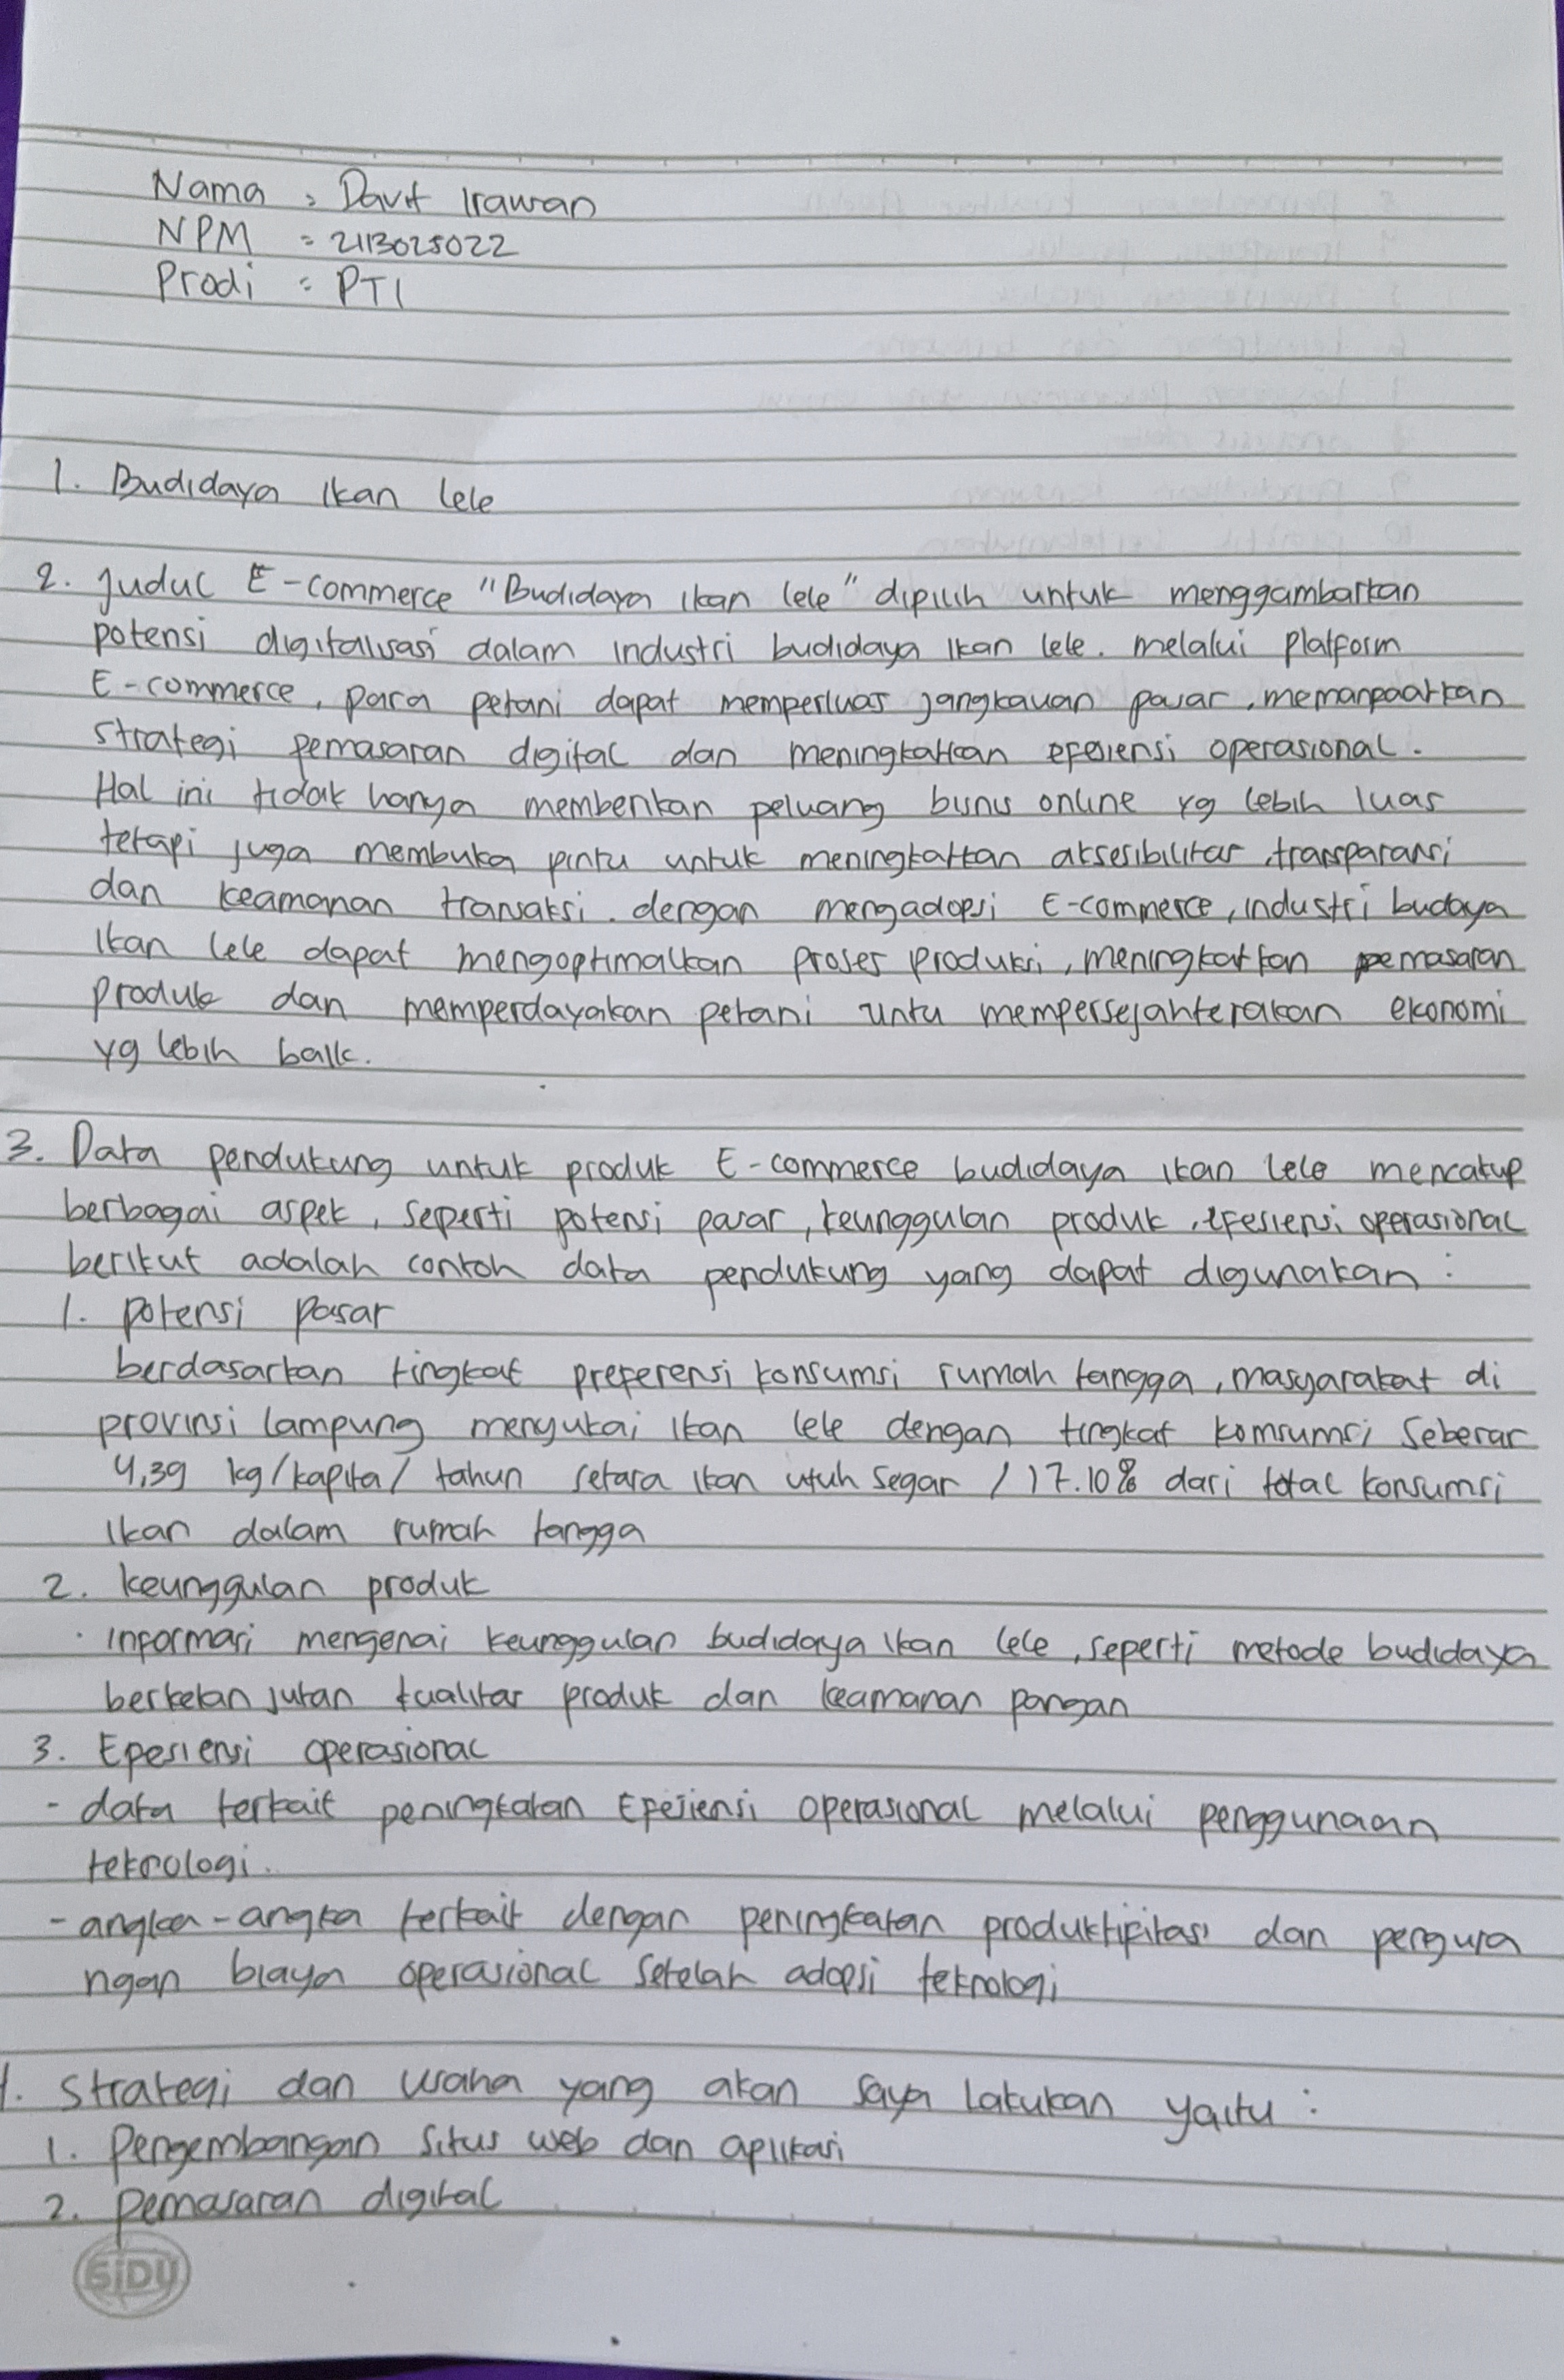 Nama : Davit Irawan
NPM : 2113025022
Prodi : PTI
1. Budidaya Ikan lele
2. Judul E-commerce "Budidaya Ikan lele" dipilih untuk menggambarkan
potensi digitalisasi dalam industri budidaya Ikan lele. melalui Platform
E-commerce, para petani dapat memperluas jangkauan pasar, memanpaatkan
strategi pemasaran digital dan meningkatkan efesiensi operasional.
Hal ini tidak hanya memberikan peluang bisnis online yg lebih luas
tetapi juga membuka pintu untuk meningkatkan aksesibilitas, transparansi
dan keamanan transaksi. dengan mengadopsi E-commerce, industri budaya
Ikan lele dapat mengoptimalkan proses produksi, meningkatkan pemasaran
produk dan memperdayakan petani untu mempersejahterakan ekonomi
yg lebih baik.
3. Data pendukung untuk produk E-commerce budidaya ikan lele mencakup
berbagai aspek, seperti potensi pasar, keunggulan produk, efesiensi operasional
berikut adalah contoh data pendukung yang dapat digunakan :
1. potensi pasar
berdasarkan tingkat preferensi konsumsi rumah tangga, masyarakat di
provinsi lampung menyukai ikan lele dengan tingkat komsumsi Sebesar
4,39 kg/kapita/ tahun setara ikan utuh segar / 17.10% dari total konsumsi
ikan dalam rumah tangga
2. keunggulan produk
· informasi mengenai keunggulan budidaya ikan lele, seperti metode budidaya
berkelanjutan kualitas produk dan keamanan pangan
3. Epesiensi operasional
- data terkait peningkatan Efesiensi operasional melalui penggunaan
teknologi.
- angka-angka terkait dengan peningkatan produktifitas dan pengura
ngan biaya operasional setelah adopsi teknologi
4. Strategi dan usaha yang akan saya lakukan yaitu :
1. Pengembangan situs web dan aplikasi
2. pemasaran digital
SiDU